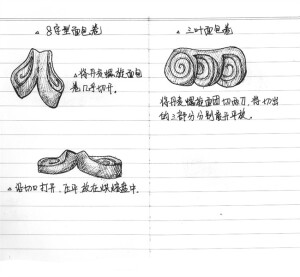 8字型面包卷
将丹麦螺旋面包
卷几乎切开。
沿切口打开，压平放在烘焙盘中。
三叶面包卷
将丹麦螺旋面团切两刀，将切出
的三部分分别展开平放。